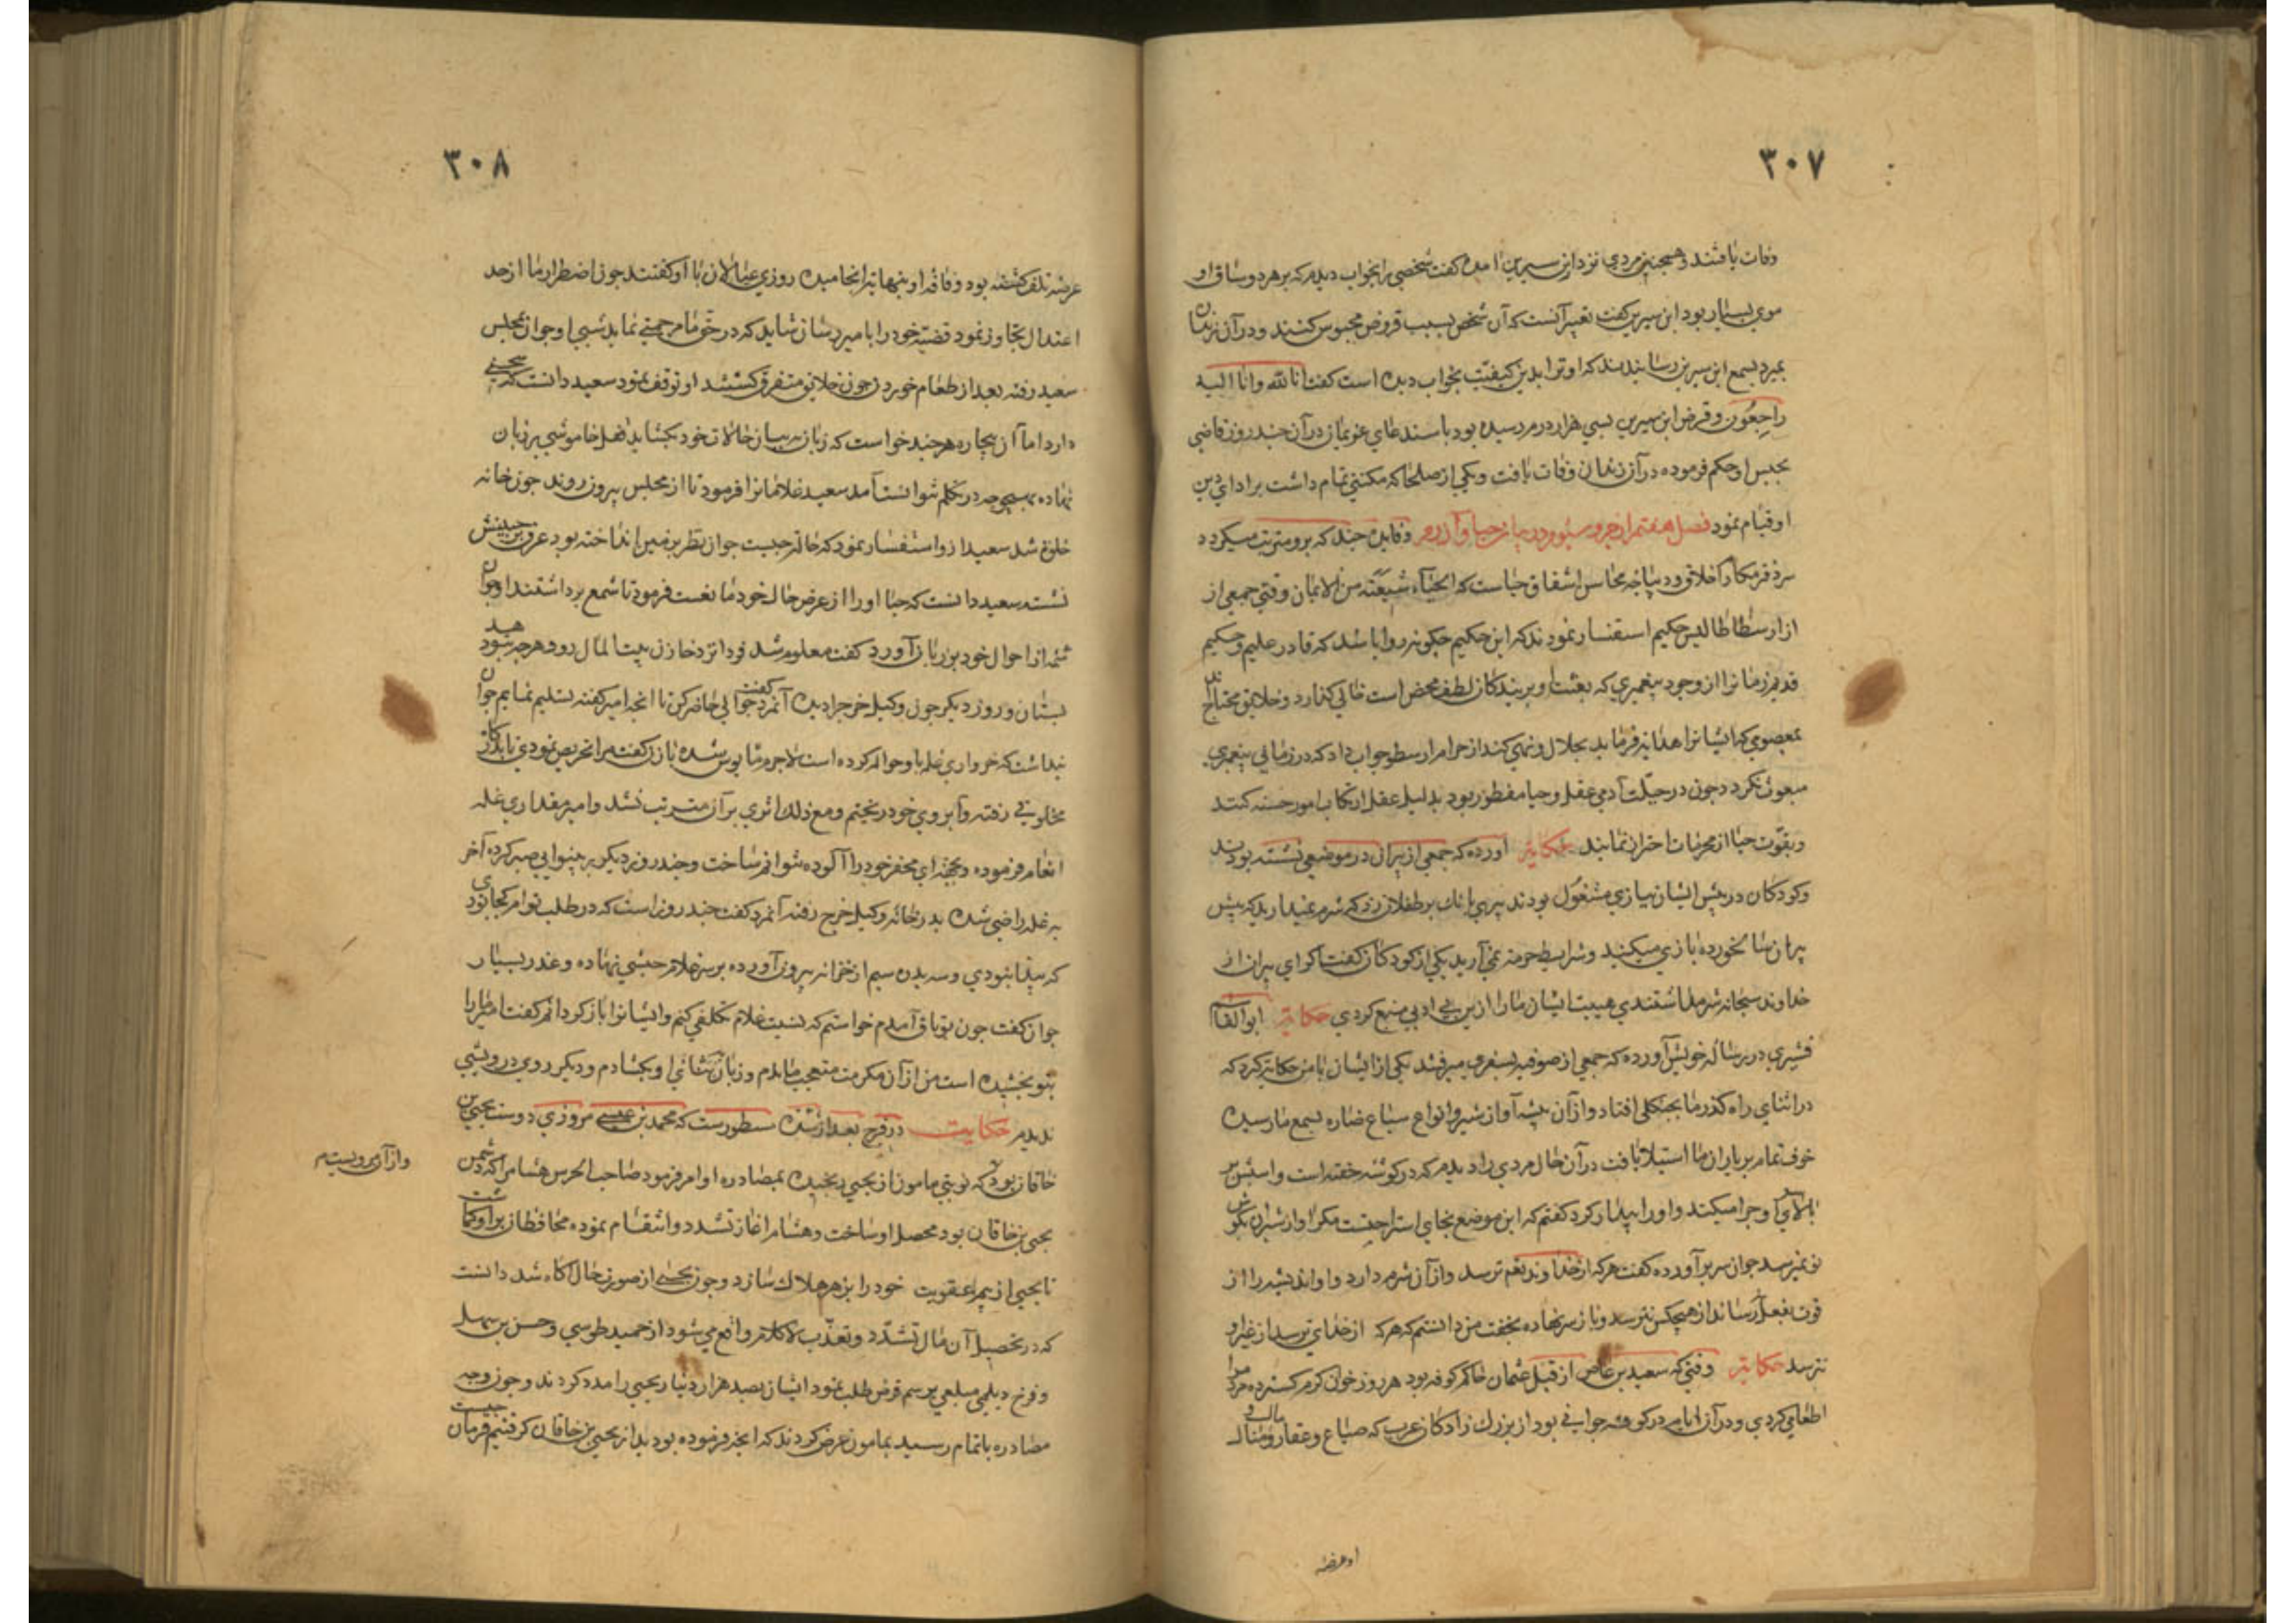 ۳۰۷
وفات یافتند و همچنین مردی نزد ابن سیرین آمده گفت شخصی را بخواب دیدم که بر هر دو ساق او
موی بسیار بود ابن سیرین گفت تعبیر آنست که آن شخص بسبب قروض محبوس کنند و در آن زندان
بمیرد بسمع ابن سیرین رسانیدند که او ترا بدین کیفیّت بخواب دیده است گفت انا لله وانا الیه
راجعُون و قرض ابن سیرین بسی هزار درم رسیده بود باستدعای غریمان در آن چند روز قاضی
بحبس او حکم فرموده در آن زندان وفات یافت و یکی از صلحا که مکنتی تمام داشت بر ادای دین
او قیام نمود فصل هفتم از جزو سیوم در بیان حیا و آزرم و فایدهٔ چند که برو مترتب میکردد
سر دفتر مکارم اخلاق و دیباجه محاسن اشفاق حیاست که الحیآء شعبَة من الایمان وقتی جمعی از
از ارسطاطالیس حکیم استفسار نمودند که این حکیم چکونه روا باشد که قادر علیم و حکیم
قدیم زمانرا از وجود پیغمبری که بعثت او بر بندکان لطف محض است خالی کذارد و خلایق محتاج اند
بمعصومی که ایشانرا هدایة فرماید بحلال و نهی کند از حرام ارسطو جواب داد که در زمانی پیغمبری
مبعوث نکردد چون در جبلّت آدمی عقل و حیا مفطور بود بدلیل عقل ارتکاب امور حسنه کنند
و بقوّت حیا از محرمات احتراز نمایند حکایة آورده که جمعی از پیران در موضعی نشسته بودند
و کودکان در پیش ایشان ببازی مشغول بودند پیری بانک بر طفلان زد که شرم نمیدارید که پیش
پیران سالخورده بازی میکنید و شرایط حرمة نمی آرید یکی از کودکان گفت اگر این پیران از
خداوند سبحانه شرم داشتندی هیبت ایشان ما را از این بی ادبی منع کردی حکایة ابوالقاسم
قشیری در رساله خویش آورده که جمعی از صوفیه بسفری میرفتند یکی از ایشان با من حکایة کرد که
در اثنای راه کذر ما بجنکلی افتاد و از آن بیشه آواز شیر و انواع سباع ضاره بسمع ما رسیده
خوف تمام بر یاران ما استیلا یافت در آن حال مردی را دیدیم که در کوشه خفته است و اسبش بر
بالای سر او چرا میکند و او را بیدار کرده کفتم که این موضع نه جای استراحتست مکر آواز شیران بکوش
تو نمیرسد جوان سر برآورده کفت هر که از خداوند نعم ترسد و از آن شرم دارد و او اندیشه را از
قوت بفعل رساند از هیچکس نترسد و باز سر نهاده بخفت من دانستم که هر که از خدای ترسد از غیر او
نترسد حکایة وقتی که سعید بن عاص از قبل عثمان حاکم کوفه بود هر روز خوان کرم کسترده مردم را
اطعامی کردی و در آن ایام در کوفه جوانی بود از بزرك زادکان عرب که ضیاع و عقار و مال و منال
او عرضه
۳۰۸
عرضه تلف کشته بود و فاقه او بنهایة انجامیده روزی عیالان با او کفتند چون اضطرار ما از حد
اعتدال تجاوز نمود قضیّه خود را با میر رسان شاید که در حق ما مرحمتی نماید شبی او جوان بمجلس
سعید رفته بعد از طعام خوردن چون خلایق متفرق کشتند او توقف نمود سعید دانست که سخنی
دارد اما آن بیچاره هر چند خواست که زبان به بیان حالات خود بکشاید قفل خاموشی بر زبان
نهاده بهیچوجه در تکلم نتوانست آمد سعید غلامانرا فرمود تا از مجلس بیرون روند چون خانه
خلوة شد سعید از و استفسار نمود که حالة چیست جوان نظر بر زمین انداخته بود عرق بر جبینش
نشسته سعید دانست که حیا او را از عرض حال خود مانعست فرمود تا شمع برداشتند و جوان
شمّه از احوال خود بر زبان آورد کفت معلوم شد فردا نزد خازن بیت المال رو و هر چه بتو دهد
بستان و روز دیکر چون وکیل خرج را دیده آنمرد کفت جوالی حاضر کن تا آنچه امیر کفته تسلیم نمایم جوان
پنداشت که خرواری غله باو حواله کرده است لاجرم مایوس شده بازن کفت مرا تحریص نمودی تا بدرکاه
مخلوقی رفته و آبروی خود ریختم و مع ذلك اثری بر آن مترتب نشد و امیر مقداری غله
انعام فرموده و بجهة ای محقر خود را آلوده نتوانم ساخت و چند روز دیکر بر بینوایی صبر کرده آخر
به غله راضی شده بدر خانه وکیل خرج رفته آنمرد کفت چند روز است که در طلب توام کجا بودی
که پیدا نبودی و سه بدره سیم از خزانه بیرون آورده بر سر غلام حبشی نهاده و عذر بسیار
جوان کفت چون بوثاق آمدم خواستم که نسبت غلام تکلفی کنم و ایشانرا باز کردانم کفت امیر ما را
بتو بخشیده است من از آن مکرمت متعجب ماندم و زبان بثنای او بکشادم و دیکر روی درویشی
ندیدم حکایت در فرج بعد از شده مسطورست که محمد بن عیسی مروزی دوست یحیی بن
خاقان بود که نوبتی مامون از یحیی رنجیده بمصادره او امر فرمود صاحب الحرس هشام را که دشمن
یحیی بن خاقان بود محصل او ساخت و هشام آغاز تشدد و انتقام نموده محافظان بر او کماشت
تا یحیی از بیم عقوبت خود را بزهر هلاك نسازد و چون یحیی از صورت حال آکاه شد دانست
که در تحصیل آن مال تشدّد و تعذّب لاکلام واقع می شود از حمید طوسی و حسن بن سهل
و فرخ دیلمی مبلغی برسم قرض طلب نمود ایشان بصد هزار دینار یحیی را مدد کردند و چون وجه
مصادره باتمام رسید بمامون عرض کردند که آنچه فرموده بودید از یحیی بن خاقان کرفتیم فرمان چیست